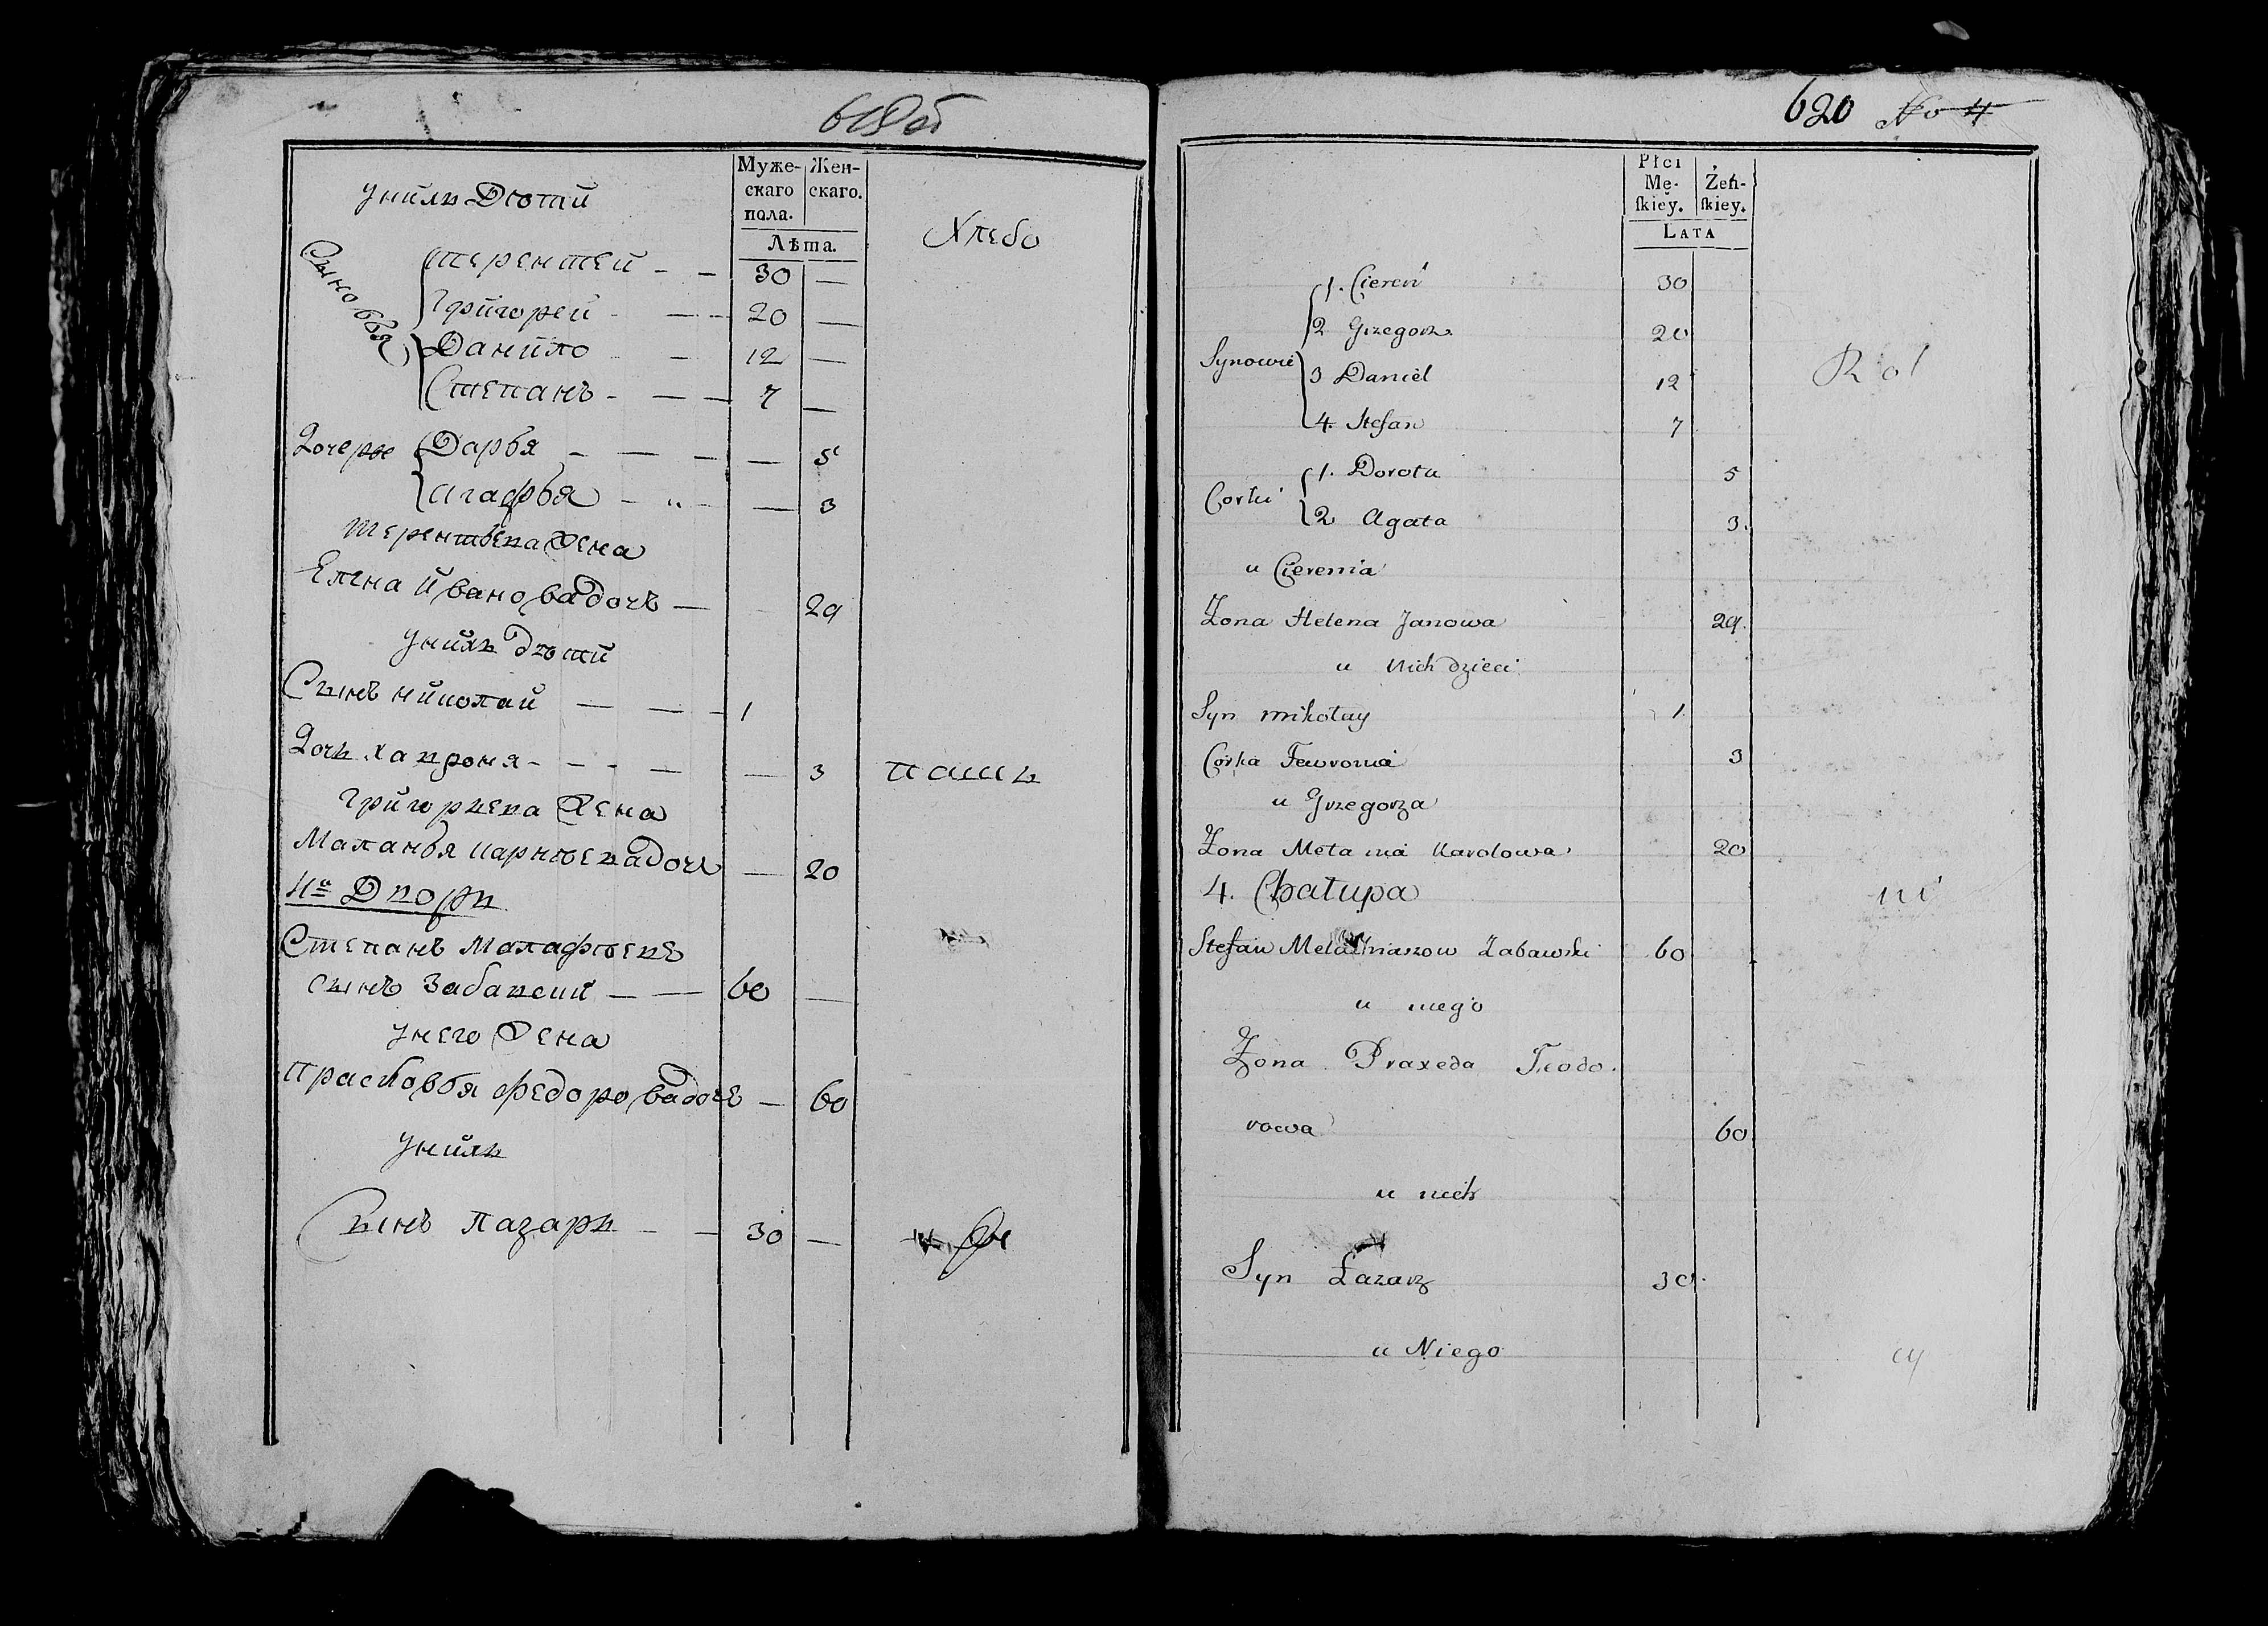 619 об
Муже-
скаго
пола.
Жен-
скаго.
Лѣта.
Унихъ Дѣтей
Хлебо
Сыновья
Терентей - - 30 —
Григорей - — - 20 —
Данило - - 12 —
Степанъ - — — 7 —
Дочери
Дарья - — - — 5
Агафья - „ - — 3
Терентьева Жена
Елена Иванова дочь — 29
Унихъ дѣти
Сынъ Николай — — - 1
Дочь Хавроня - - - — — 3
пашъ
Григорьева Жена
Маланья Карпова дочь — 20
4й Дворъ
Степанъ Малафѣевъ
сынъ Забавски — — 60 —
Унего Жена
Прасковья Федорова дочь — 60
Унихъ
Сынъ Лазарь - — 30 —
620 No 4
Płci
Mę-
skiey.
Żeń-
skiey.
LATA
Synowie
1. Cieren 30
2 Grzegorz 20
3 Daniel 12
Rol
4. Stefan 7
Corki
1. Dorota 5
2 Agata 3.
u Cierenia
Zona Helena Janowa 29.
u Nich dzieci
Syn mikołay 1.
Córka Fewronia 3
u Grzegorza
Zona Melania Karolowa 20
4. Chałupa
ni
Stefan Zabawski 60
u niego
Zona Praxeda Teodo.
rowa 60
u nich
Syn Łazarz 30.
u Niego
cy